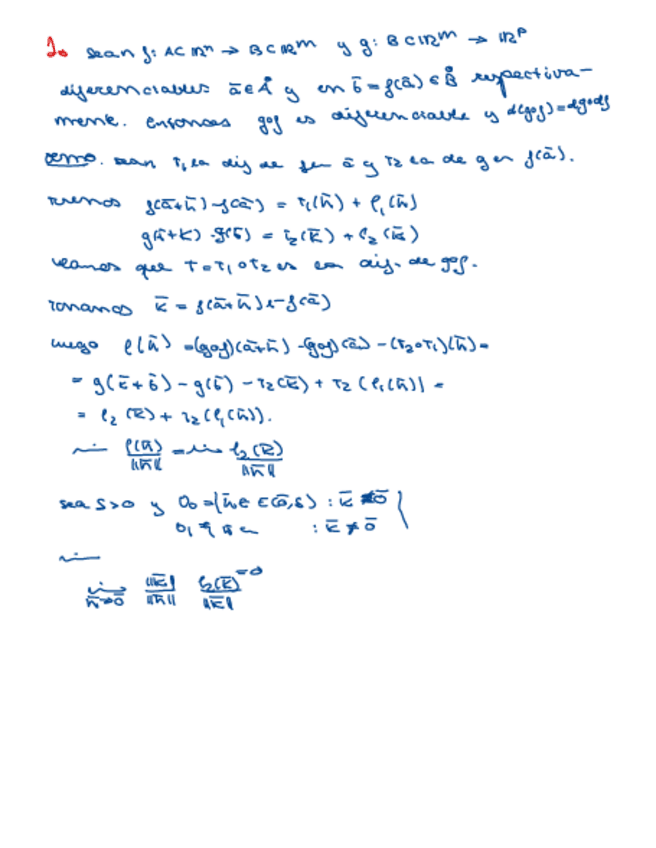 1. Sean f: A⊂ℝⁿ → B⊂ℝᵐ y g: B⊂ℝᵐ → ℝᵖ
diferenciables ā∈Å y en b̄ = f(ā) ∈ B̊ respectiva-
mente. Entonces g∘f es diferenciable y d(g∘f)=dg∘df
Demo. Sean T₁ la dif de f en ā y T₂ la de g en f(ā).
Tenemos f(ā+h̄)-f(ā) = T₁(h̄) + ρ₁(h̄)
g(b̄+k̄)-g(b̄) = T₂(k̄) + ρ₂(k̄)
Veamos que T=T₁∘T₂ es la dif. de g∘f.
Tomamos k̄ = f(ā+h̄)-f(ā)
Luego ρ(h̄) =(g∘f)(ā+h̄) -(g∘f)(ā) - (T₂∘T₁)(h̄)=
= g(k̄+b̄) - g(b̄) - T₂(k̄) + T₂(ρ₁(h̄)) =
= ρ₂(k̄) + T₂(ρ₁(h̄)).
lim ρ(h̄)/‖h̄‖ = lim ρ₂(k̄)/‖h̄‖
Sea δ>0 y O₀ ={h̄∈E(ō,δ) : k̄=ō}
O₁ = : k̄≠ō
lim
lim h̄→ō ‖k̄‖/‖h̄‖ ρ₂(k̄)/‖k̄‖ =0